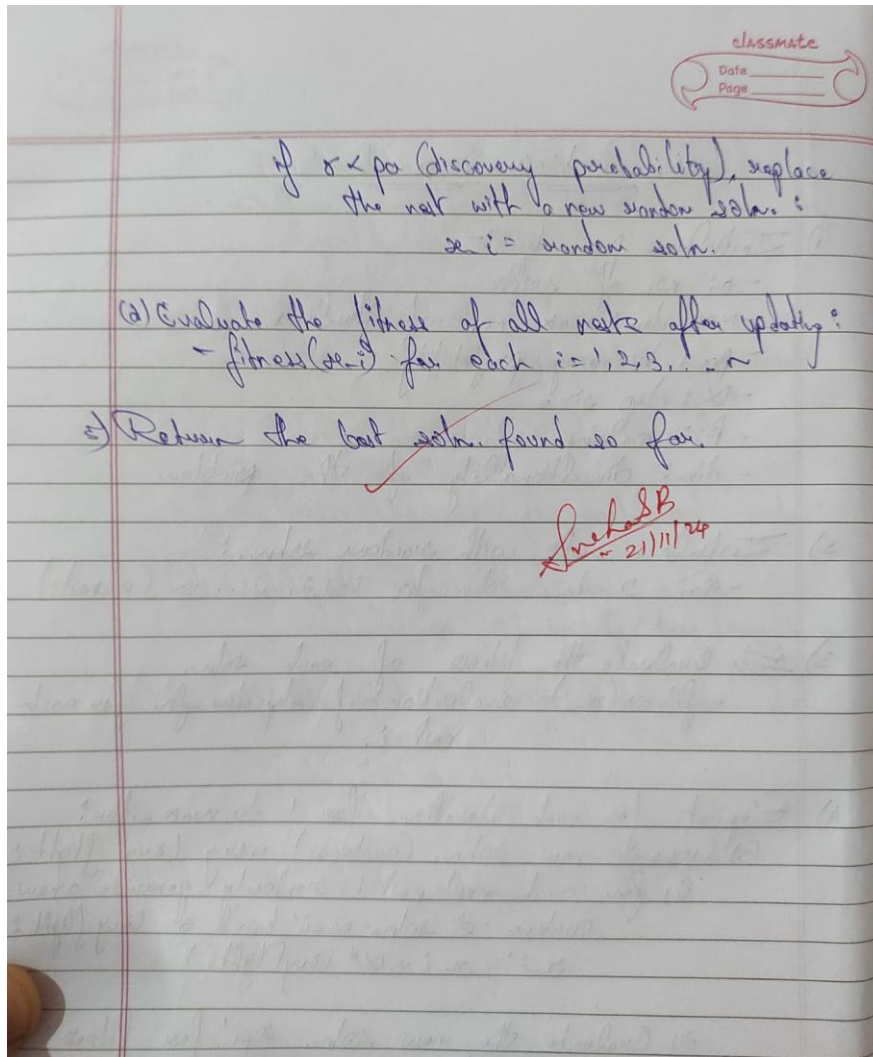 classmate
Date
Page
if r < pa (discovery probability), replace
the nest with a new random soln. :
x_i = random soln.
(d) Evaluate the fitness of all nests after updating:
- fitness(x_i) for each i = 1, 2, 3, . . . n
5) Return the best soln. found so far.
SnehaSB
- 21/11/24